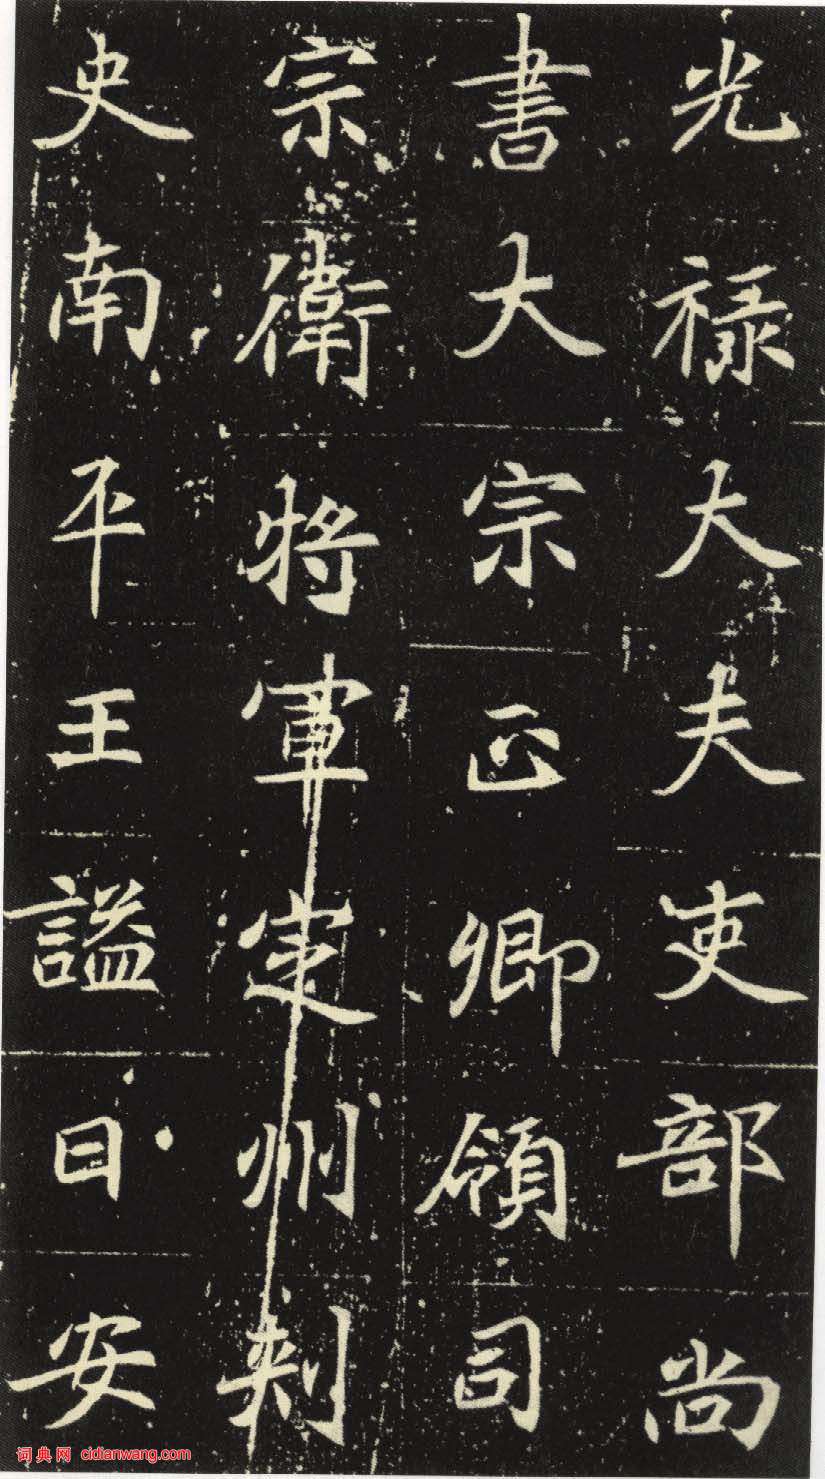 光禄大夫吏部尚
書大宗正卿領司
宗衛將軍定州刺
史南平王謚曰安
词典网 cidianwang.com